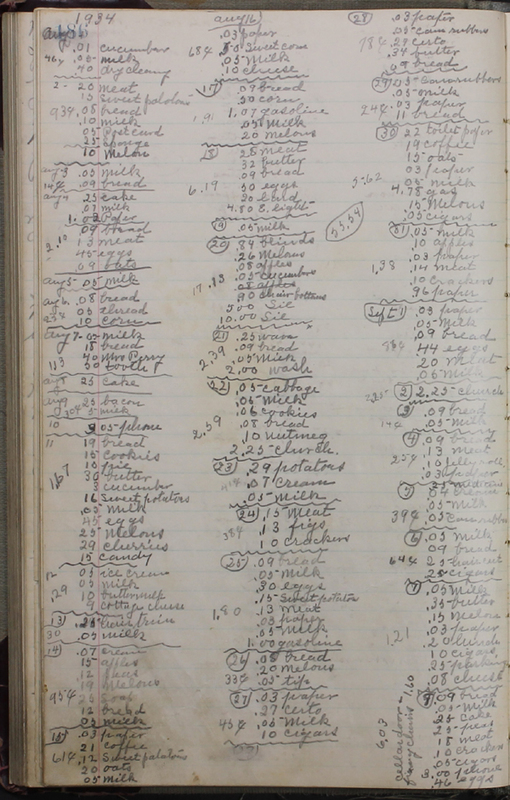 1934
.01 cucumbers
.05 milk
40 dry cleaning
20 meat
15 Sweet potatoes
.08 bread
.10 milk
05 Post card
10 Melon
aug 3 .05 milk
.09 bread
aug 4 25 cake
07 milk
.09 bread
13 meat
45 eggs
.09 oats
aug 5 .05 milk
aug 6 .08 bread
05 thread
10 corn
aug 7 .05 milk
18 bread
aug 8 25 cake
aug 9 25 bacon
5 milk
10 phone
11 19 bread
15 cookies
30 butter
3 cucumber
16 Sweet potatoes
.05 milk
45 eggs
25 Melons
29 cherries
15 candy
12 05 ice cream
05 milk
10 buttermilk
9 cottage cheese
13
30 .05 milk
14 .07 cream
15 apples
19 Melons
95¢
12 bread
05 milk
15 .03 paper
21 coffee
61¢ .12 Sweet potatoes
20 oats
05 milk
aug 16
.03 paper
Sweet corn
.05 Milk
.10 cheese
17 .09 bread
30 corn
1.91 1.07 gasoline
.05 Milk
20 melons
18 25 meat
32 butter
.09 bread
6.19 30 eggs
4.80 E. light
19 .05 milk
20 84 blinds
.26 Melons
.08 apples
.05 cucumbers
.08 apples
90 chair bottoms
500 Sil
10.00 Sil
21
2.39 .09 bread
.05 Milk
2.00 wash
22 .05 cabbage
.05 Milk
.06 cookies
2.59 .08 bread
10 nutmeg
2.25 church.
23 .29 potatoes
.07 cream
.05 Milk
24 .15 Meat
38¢ .13 figs
10 crackers
25 .09 bread
.05 Milk
30 eggs
.15 Sweet potatoes
1.80 .13 meat
.03 paper
.05 Milk
1.00 gasoline
26 .08 bread
20 melons
33¢ .05 tip
27 .03 paper
27 certo
45¢ .05 Milk
10 cigars
28 .03 paper
.05 can rubbers
78¢ .29 certo
.34 butter
.09 bread
29 .05 Can rubbers
.05 milk
24¢ .03 paper
11 bread
30 22 toilet paper
19 coffee
15 oats
.03 paper
5.62 .05 milk
4.78 gas
.15 Melons
.05 cigars
53.54
31 .05 milk
10 apples
.03 paper
1.38 .14 meat
10 crackers
96 paper
Sept 1 .03 paper
.05 Milk
.09 bread
44 eggs
20 Meat
.05 Milk
2 2.25 church
3 .09 bread
14¢ .05 milk
4 .09 bread
.13 meat
25¢ .10 jelly roll
.03 paper
5
.05 Milk
39¢ .05 can rubber
6 .05 Milk
09 bread
64¢
25 cigars
7 .05 Milk
.35 butter
.15 Melons
.03 paper
1.21
10 cigars
.08 cheese
8 .09 bread
.05 Milk
25 cake
25 peas
18 meat
10 crackers
.05 cigars
3.00 phone
.46 eggs
6.03
cellar door
1.60